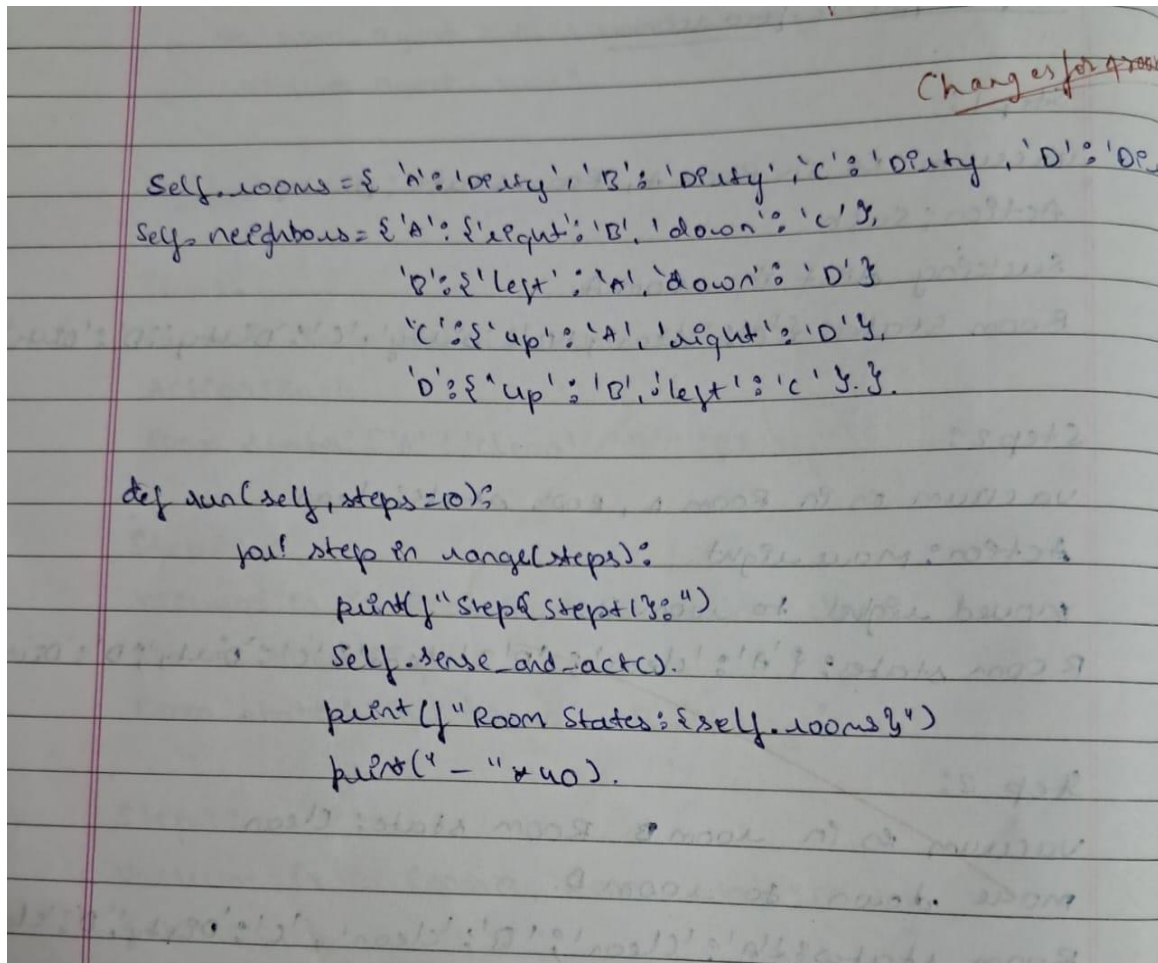 Changes for 4 room
self.rooms = { 'A': 'Dirty', 'B': 'Dirty', 'C': 'Dirty, 'D': 'Di
self.neighbours = {'A': {'right': 'B', 'down': 'C'},
'B': {'left': 'A', 'down': 'D'}
'C': {'up': 'A', 'right': 'D'},
'D': {'up': 'B', 'left': 'C' }. }.
def run(self, steps=10):
for step in range(steps):
print(f"Step{step+1}:")
self.sense_and_act().
print(f"Room States: {self.rooms}")
print("-"*40).